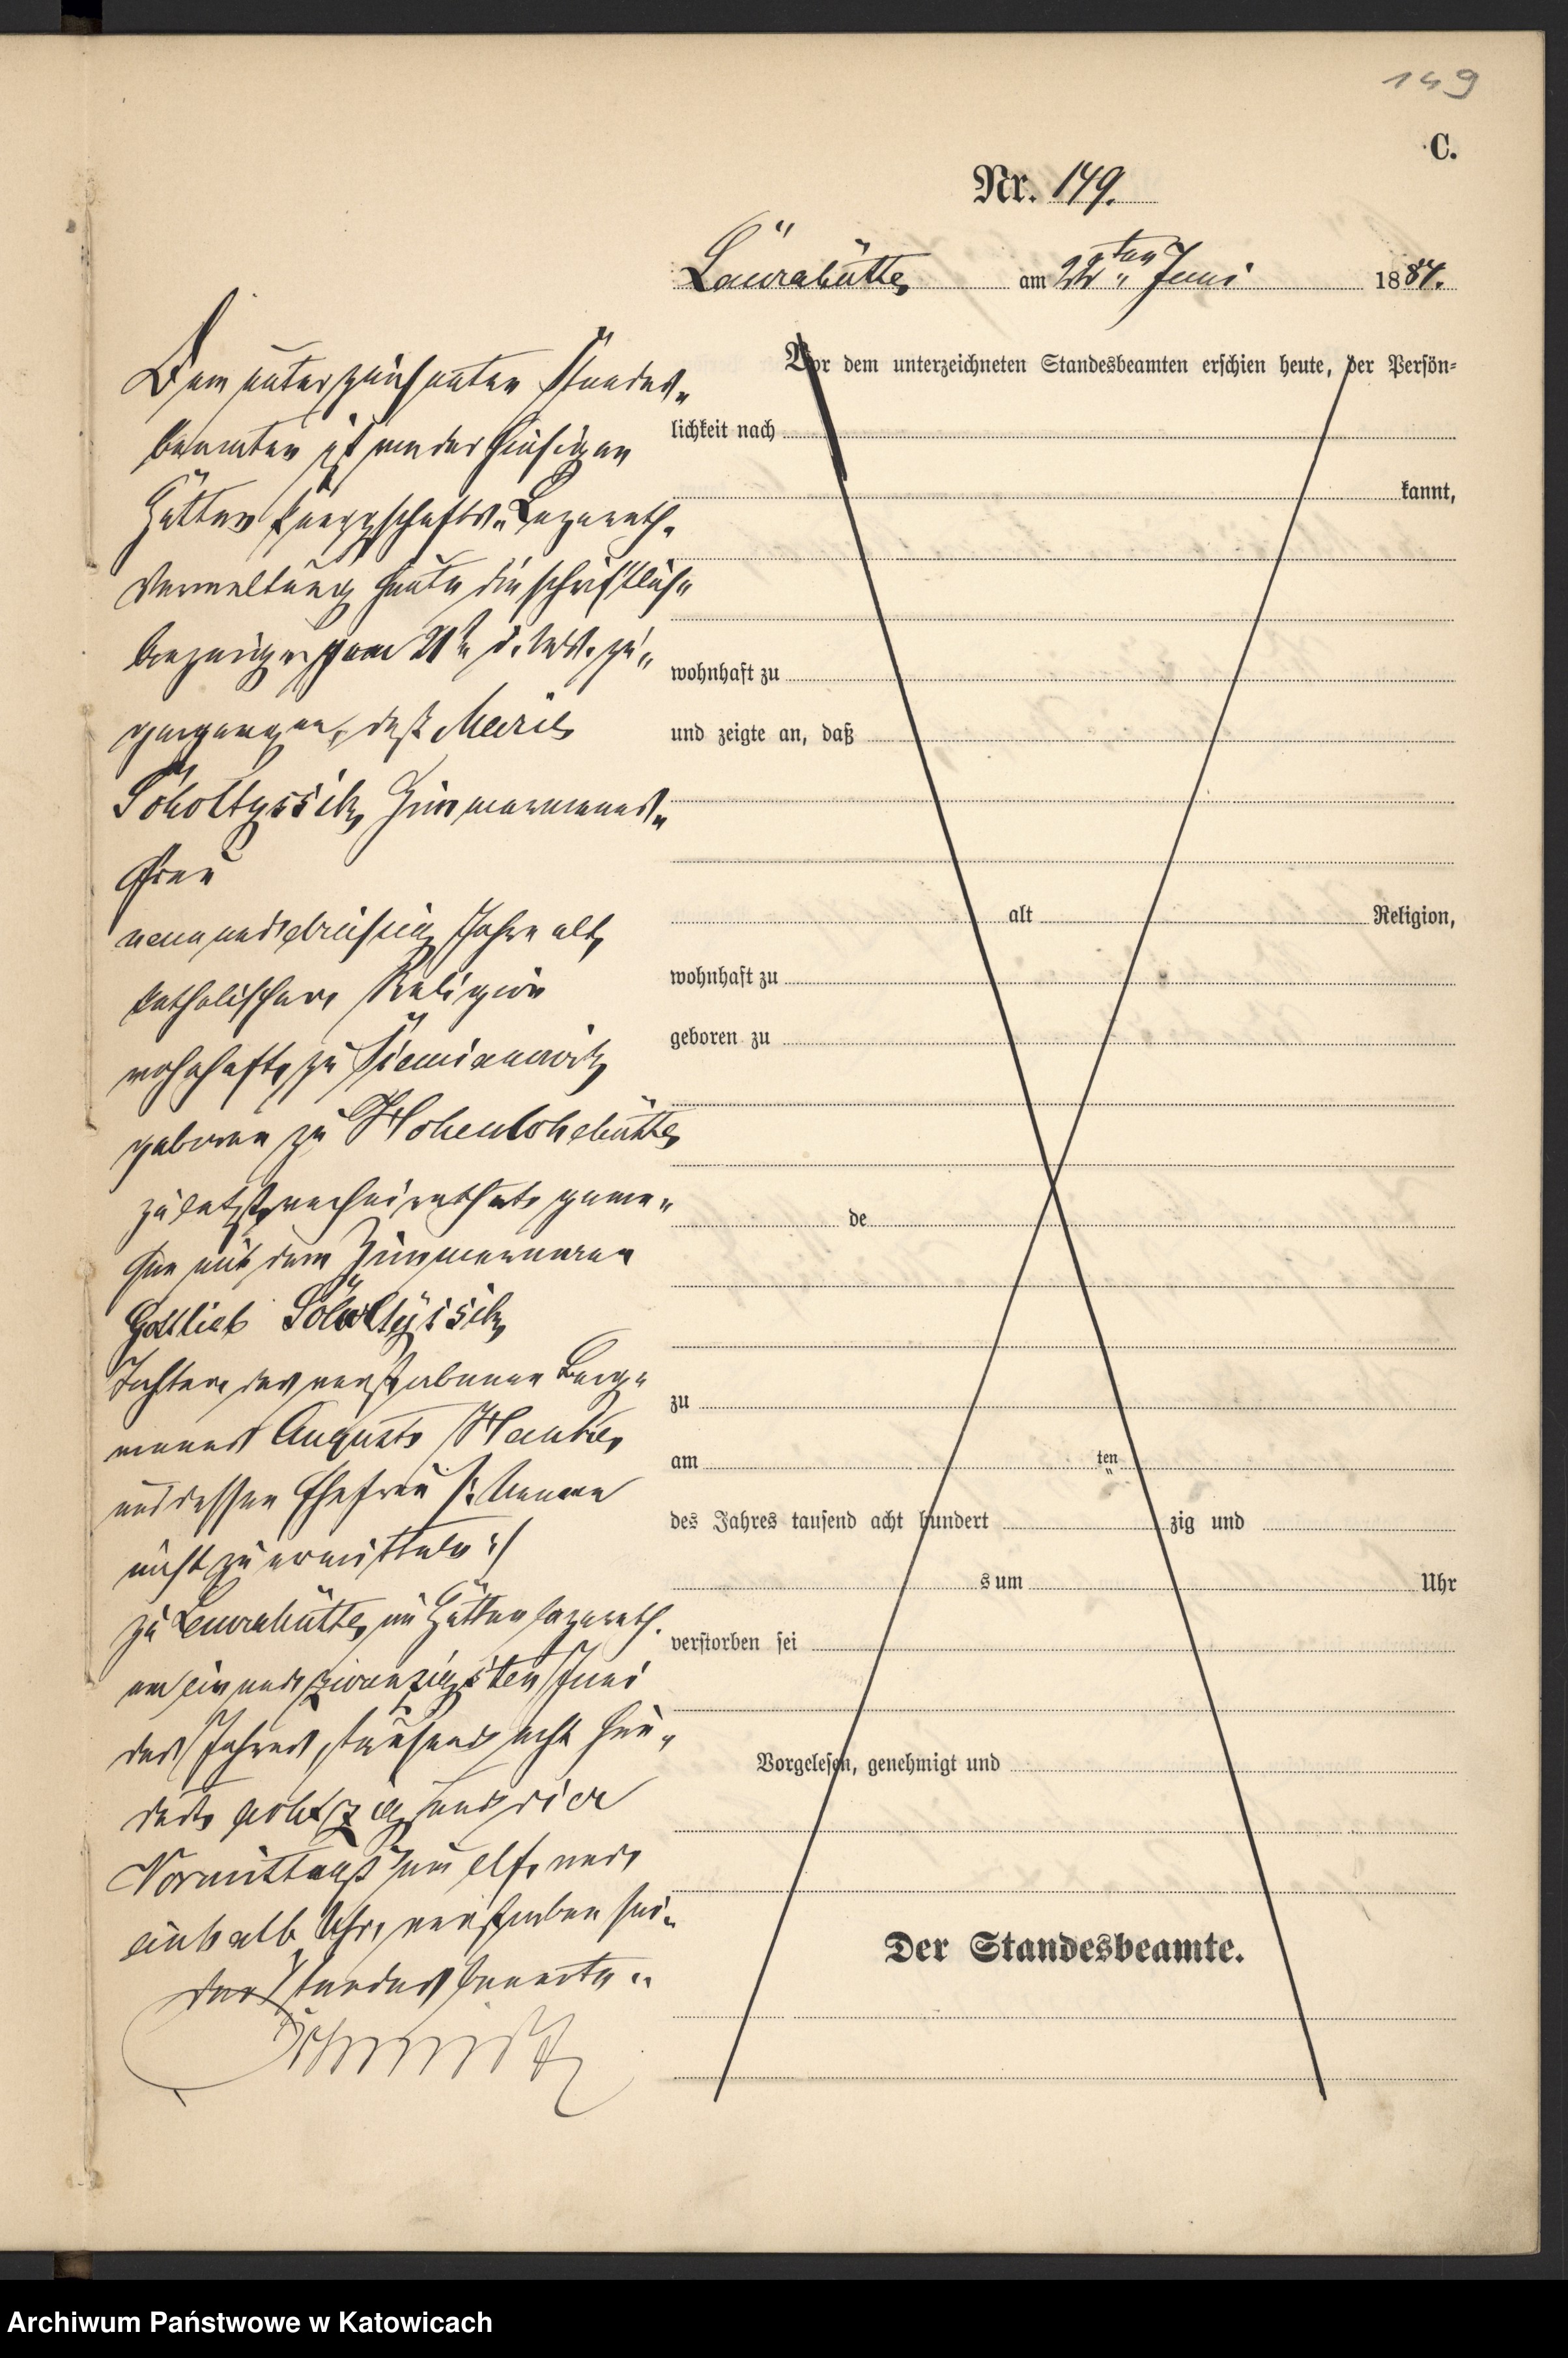 149
C.
Nr. 149.
Laurahütte am 22ten Juni 1884.
Dem unterzeichneten Standes-
beamten ist von der hiesigen
Hütten Knappschafts-Lazareth-
Verwaltung heute die schriftliche
Anzeige vom 21ten d. Mts. zu-
gegangen, daß Marie
Scholtyssik, Zimmermanns-
frau
neun und dreißig Jahre alt,
katholischer Religion
wohnhaft zu Siemianowitz
geboren zu Hohenlohehütte
zuletzt verheirathet gewe-
sen mit dem Zimmermann
Gottlieb Scholtyssik,
Tochter des verstorbenen Berg-
manns August
und dessen Ehefrau /: Namen
nicht zu ermitteln :/
zu Laurahütte, im Hüttenlazareth
am ein und zwanzigsten Juni
des Jahres tausend acht hun-
dert achtzig und vier
Vormittags um elf und
einhalb Uhr, verstorben sei.
Der Standesbeamte.
Vor dem unterzeichneten Standesbeamten erschien heute, der Persön-
lichkeit nach
kannt,
wohnhaft zu
und zeigte an, daß
alt Religion,
wohnhaft zu
geboren zu
de
zu
am ten
des Jahres tausend acht hundert zig und
s um Uhr
verstorben sei
Vorgelesen, genehmigt und
Der Standesbeamte.
Archiwum Państwowe w Katowicach